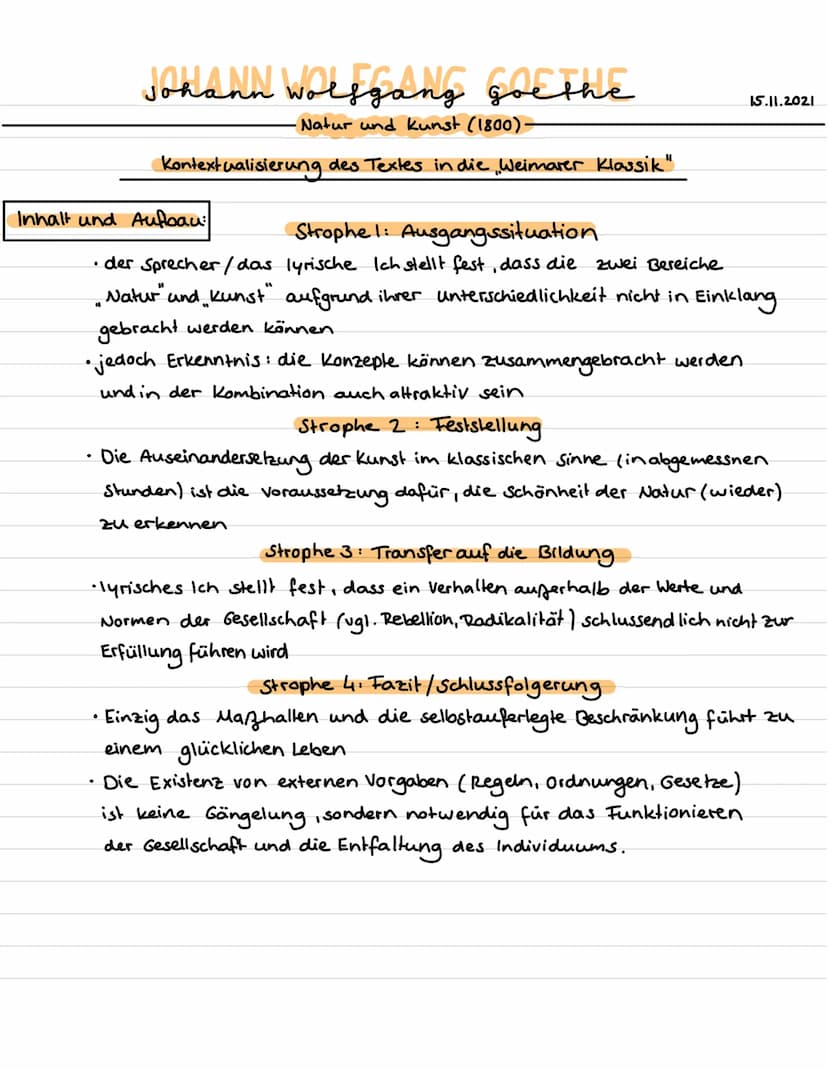 JOHANN WOLFGANG GOETHE
Johann Wolfgang Goethe
15.11.2021
Natur und Kunst (1800)
Kontextualisierung des Textes in die „Weimarer Klassik"
Inhalt und Aufbau:
Strophe 1: Ausgangssituation
• der Sprecher/das lyrische Ich stellt fest, dass die zwei Bereiche
„Natur" und „Kunst" aufgrund ihrer Unterschiedlichkeit nicht in Einklang
gebracht werden können
• jedoch Erkenntnis: die Konzepte können zusammengebracht werden
und in der Kombination auch attraktiv sein
Strophe 2: Feststellung
• Die Auseinandersetzung der Kunst im klassischen Sinne (in abgemessnen
Stunden) ist die Voraussetzung dafür, die Schönheit der Natur (wieder)
zu erkennen
Strophe 3: Transfer auf die Bildung
• lyrisches Ich stellt fest, dass ein Verhalten außerhalb der Werte und
Normen der Gesellschaft (vgl. Rebellion, Radikalität) schlussendlich nicht zur
Erfüllung führen wird
Strophe 4: Fazit/Schlussfolgerung
• Einzig das Maßhalten und die selbstauferlegte Beschränkung führt zu
einem glücklichen Leben
• Die Existenz von externen Vorgaben (Regeln, Ordnungen, Gesetze)
ist keine Gängelung, sondern notwendig für das Funktionieren
der Gesellschaft und die Entfaltung des Individuums.